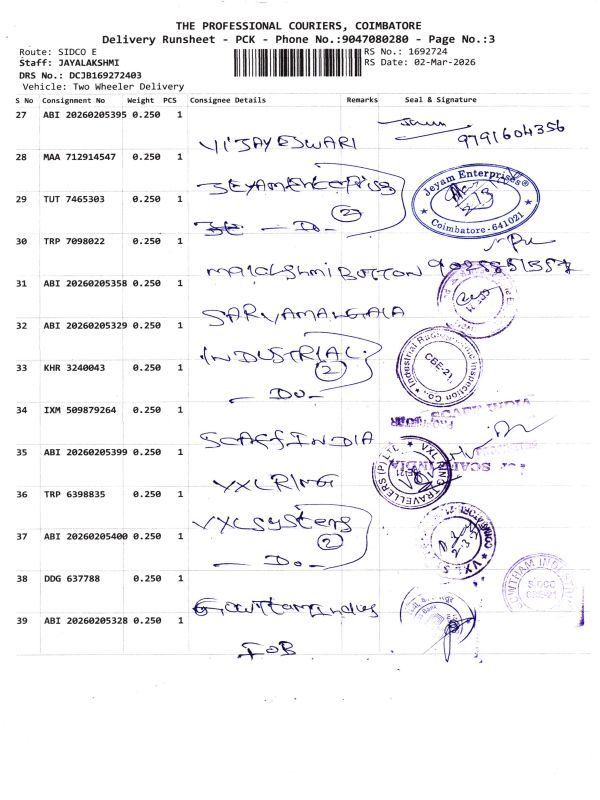 THE PROFESSIONAL COURIERS, COIMBATORE
Delivery Runsheet - PCK - Phone No.:9047080280 - Page No.:3
Route: SIDCO E RS No.: 1692724
Staff: JAYALAKSHMI RS Date: 02-Mar-2026
DRS No.: DCJB169272403
Vehicle: Two Wheeler Delivery
S No Consignment No Weight PCS Consignee Details Remarks Seal & Signature
27 ABI 20260205395 0.250 1
VIJAYESWARI 9791604356
28 MAA 712914547 0.250 1
JEYAM Enterprises
Jeyam Enterprises®
Coimbatore-641021
29 TUT 7465303 0.250 1
— Do — (2)
30 TRP 7098022 0.250 1
31 ABI 20260205358 0.250 1
SARVAMANGALA
32 ABI 20260205329 0.250 1
INDUSTRIAL (2)
CBE-21
33 KHR 3240043 0.250 1
— Do —
34 IXM 509879264 0.250 1
SCARF INDIA
For SCARF INDIA
35 ABI 20260205399 0.250 1
VXL RING
VXL RING TRAVELLERS (P) LTD
36 TRP 6398835 0.250 1
VXL Systems (2)
37 ABI 20260205400 0.250 1
— Do —
38 DDG 637788 0.250 1
Gowtham Indus
GOWTHAM INDUS
SIDCO
CBE-21
39 ABI 20260205328 0.250 1
IOB